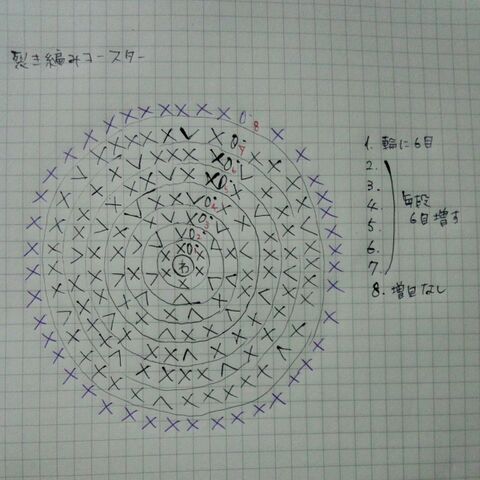 裂き編みコースター
8
7
6
5
4
3
2
わ
1. 輪に6目
2.
3.
4. 毎段
5. 6目増す
6.
7.
8. 増目なし